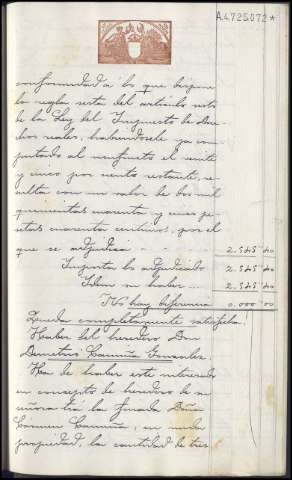 A.4.725.072*
conformidad á lo que dispone
la regla sesta del artículo
de la Ley del Impuesto de dere-
chos reales; habiendosele ya com-
putado al usufructo el veinte
y cinco por ciento restante, re-
sulta con un valor de dos mil
quinientas cuarenta y cinco pe-
setas cuarenta centimos, por el
que se adjudica 2.545 40
Importa lo adjudicado 2.545 40
Idem su haber 2.545 40
No hay diferencia 0.000 00
Queda completamente satisfecha.
Haber del heredero Don
Demetrio Carmuña Fernandez.
Ha de haber este interesado
en concepto de heredero de su
tia la finada Doña
Carmen Carmuña, en nuda
propiedad, la cantidad de tres